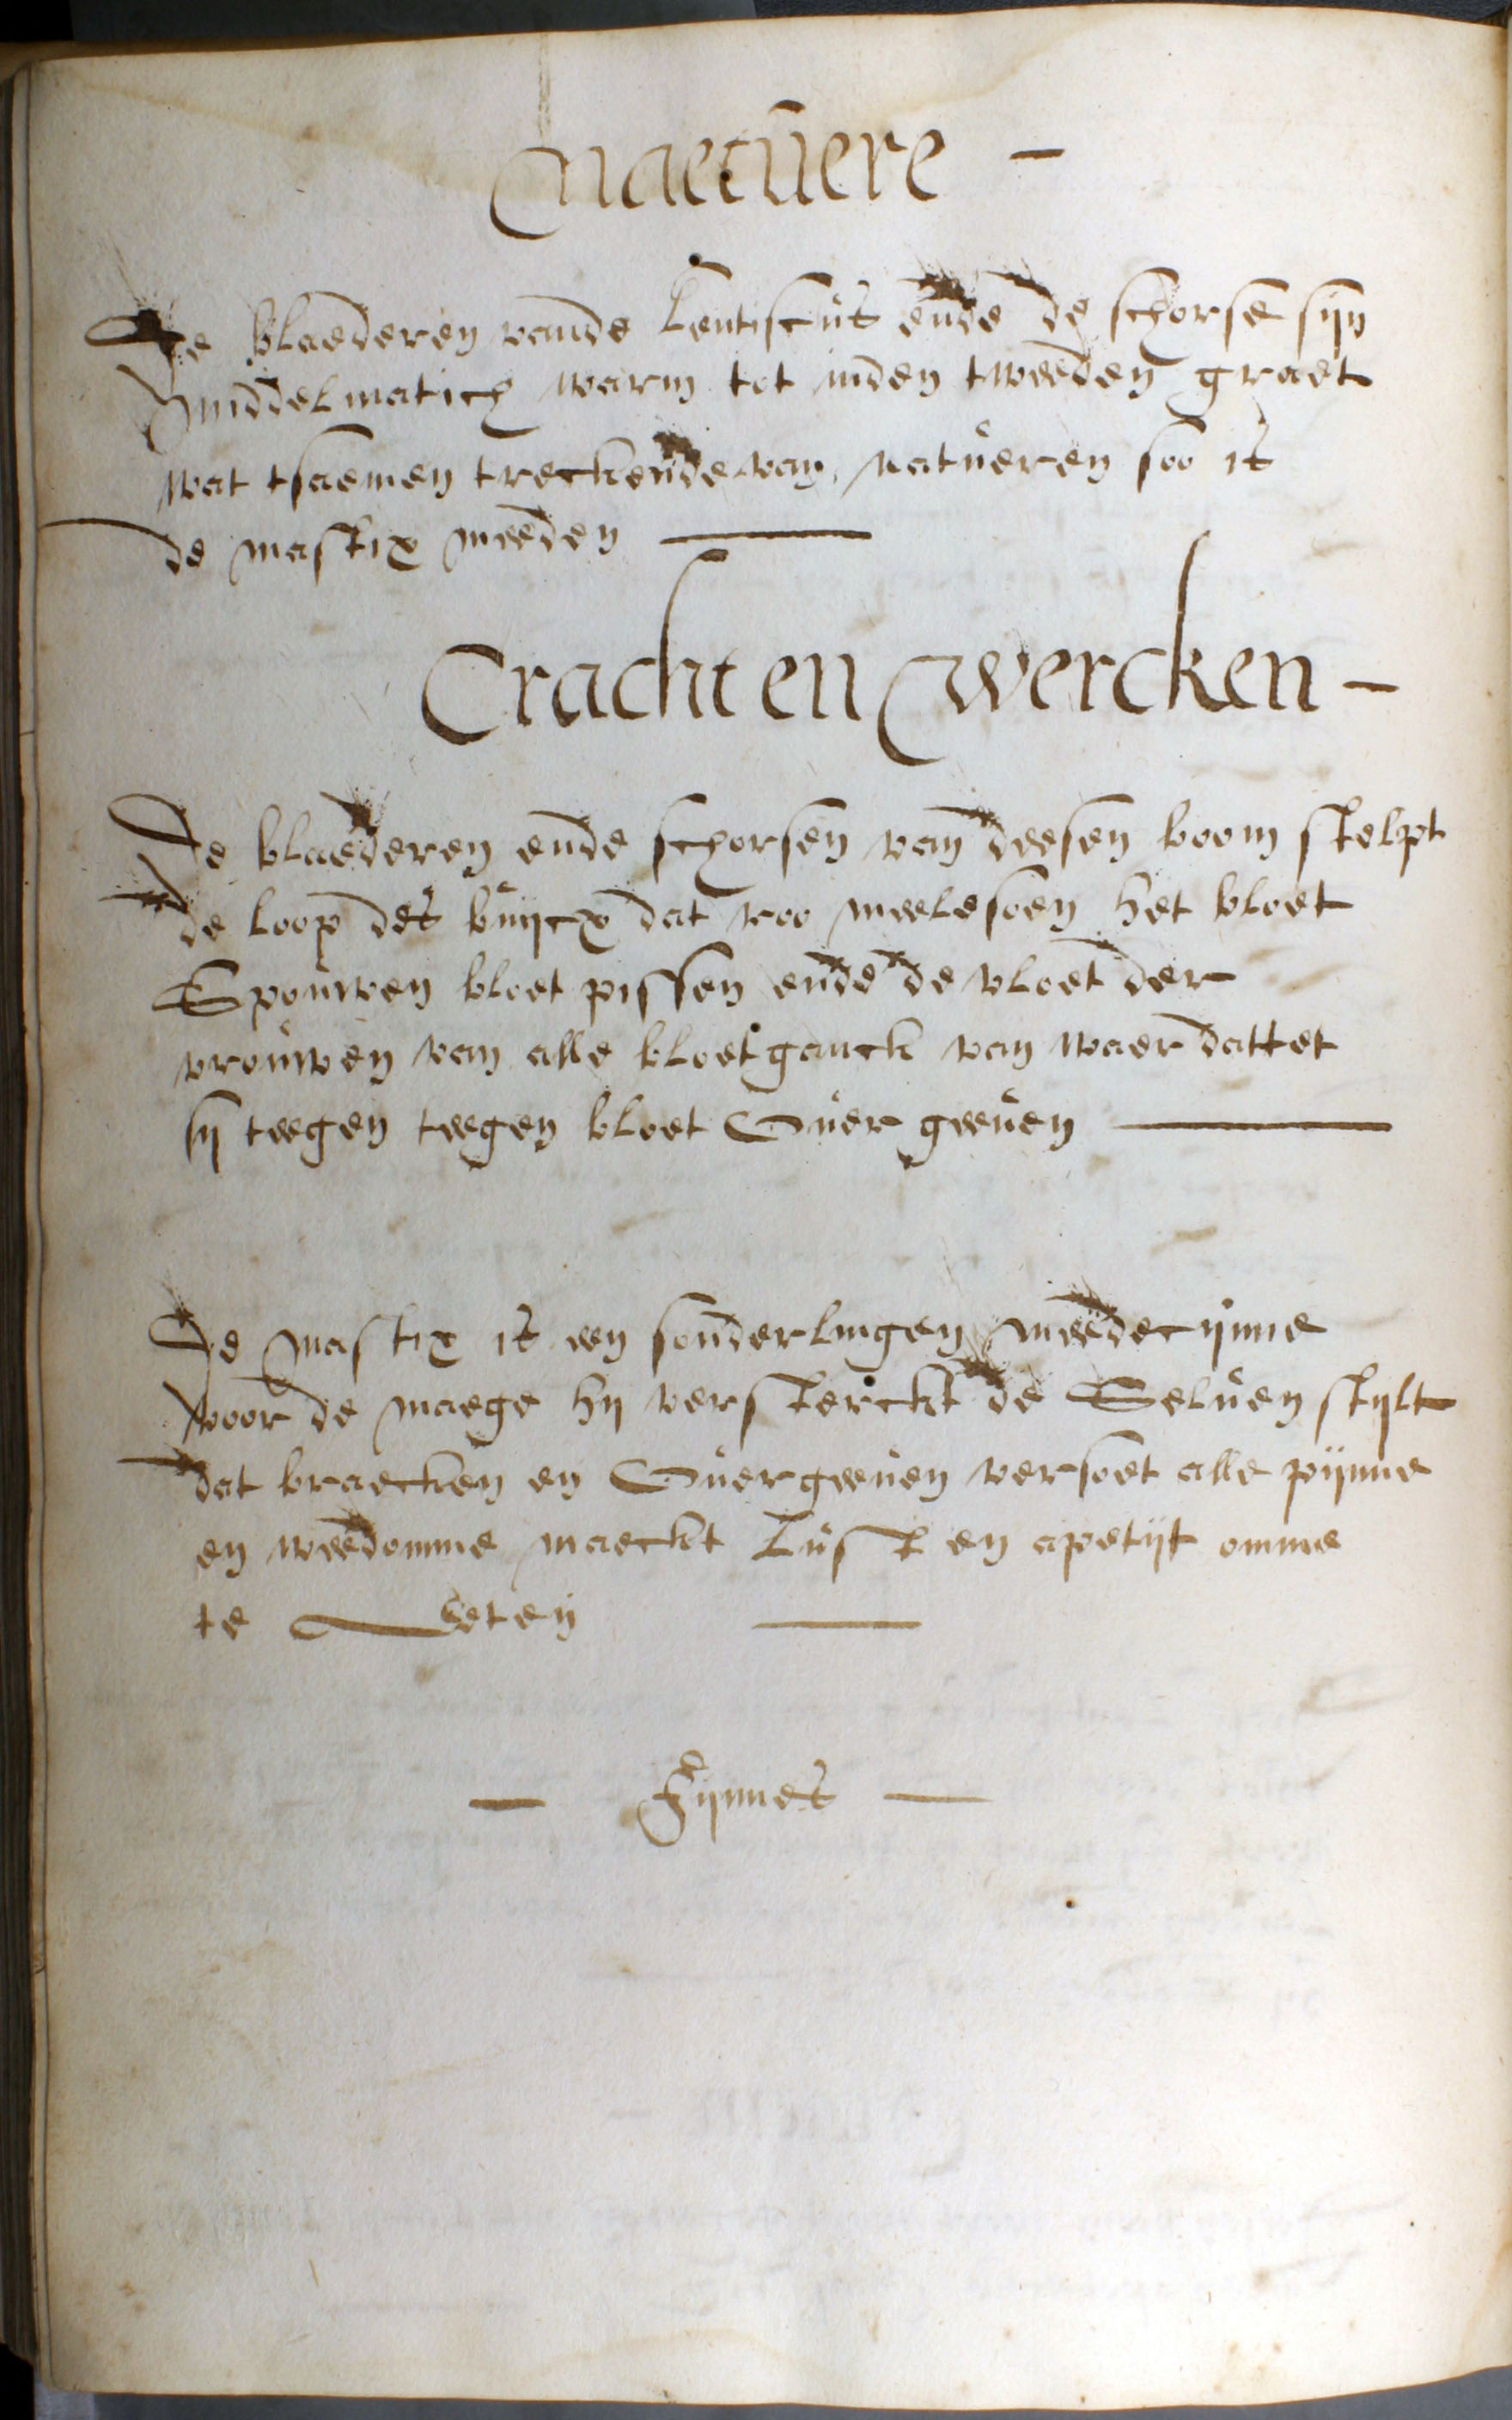 Naetuere -
De blaederen vande Lentiscus ende de schorse sijn
middelmatich warm tot inden tweeden graet
wat tsaemen treckende van natueren soo is
de mastix meeden
Crachten wercken -
De blaederen ende schorsen van deesen boom stelpt
de loop des buijcx dat roo meelesoen het bloet
Spouwen bloet pissen ende de vloet der
vrouwen van alle bloetganck van waer dattet
sij teegen teegen bloet Ouer geeuen
De mastix is een sonderlingen meedecijnne
voor de maege hij versterckt de Seluen stijlt
dat braecken en Ouergeeuen versoet alle pijnne
en weedomme maeckt Lust en apetijt omme
te Eeten
- Fijnnes -